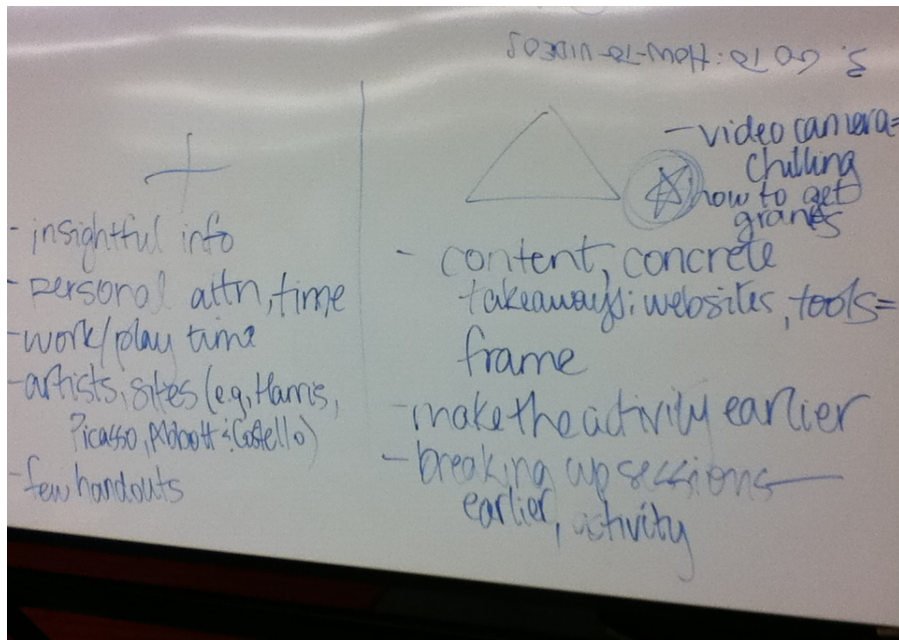 3. GO TO: HOW-TO-VIDEOS
+
- insightful info
- personal attn, time
- work/play time
- artists, sites (e.g., Harris,
Picasso, Abbott & Costello)
- few handouts
- video camera =
chilling
how to get
grants
- content, concrete
takeaways: websites, tools =
frame
- make the activity earlier
- breaking up sessions —
earlier, activity